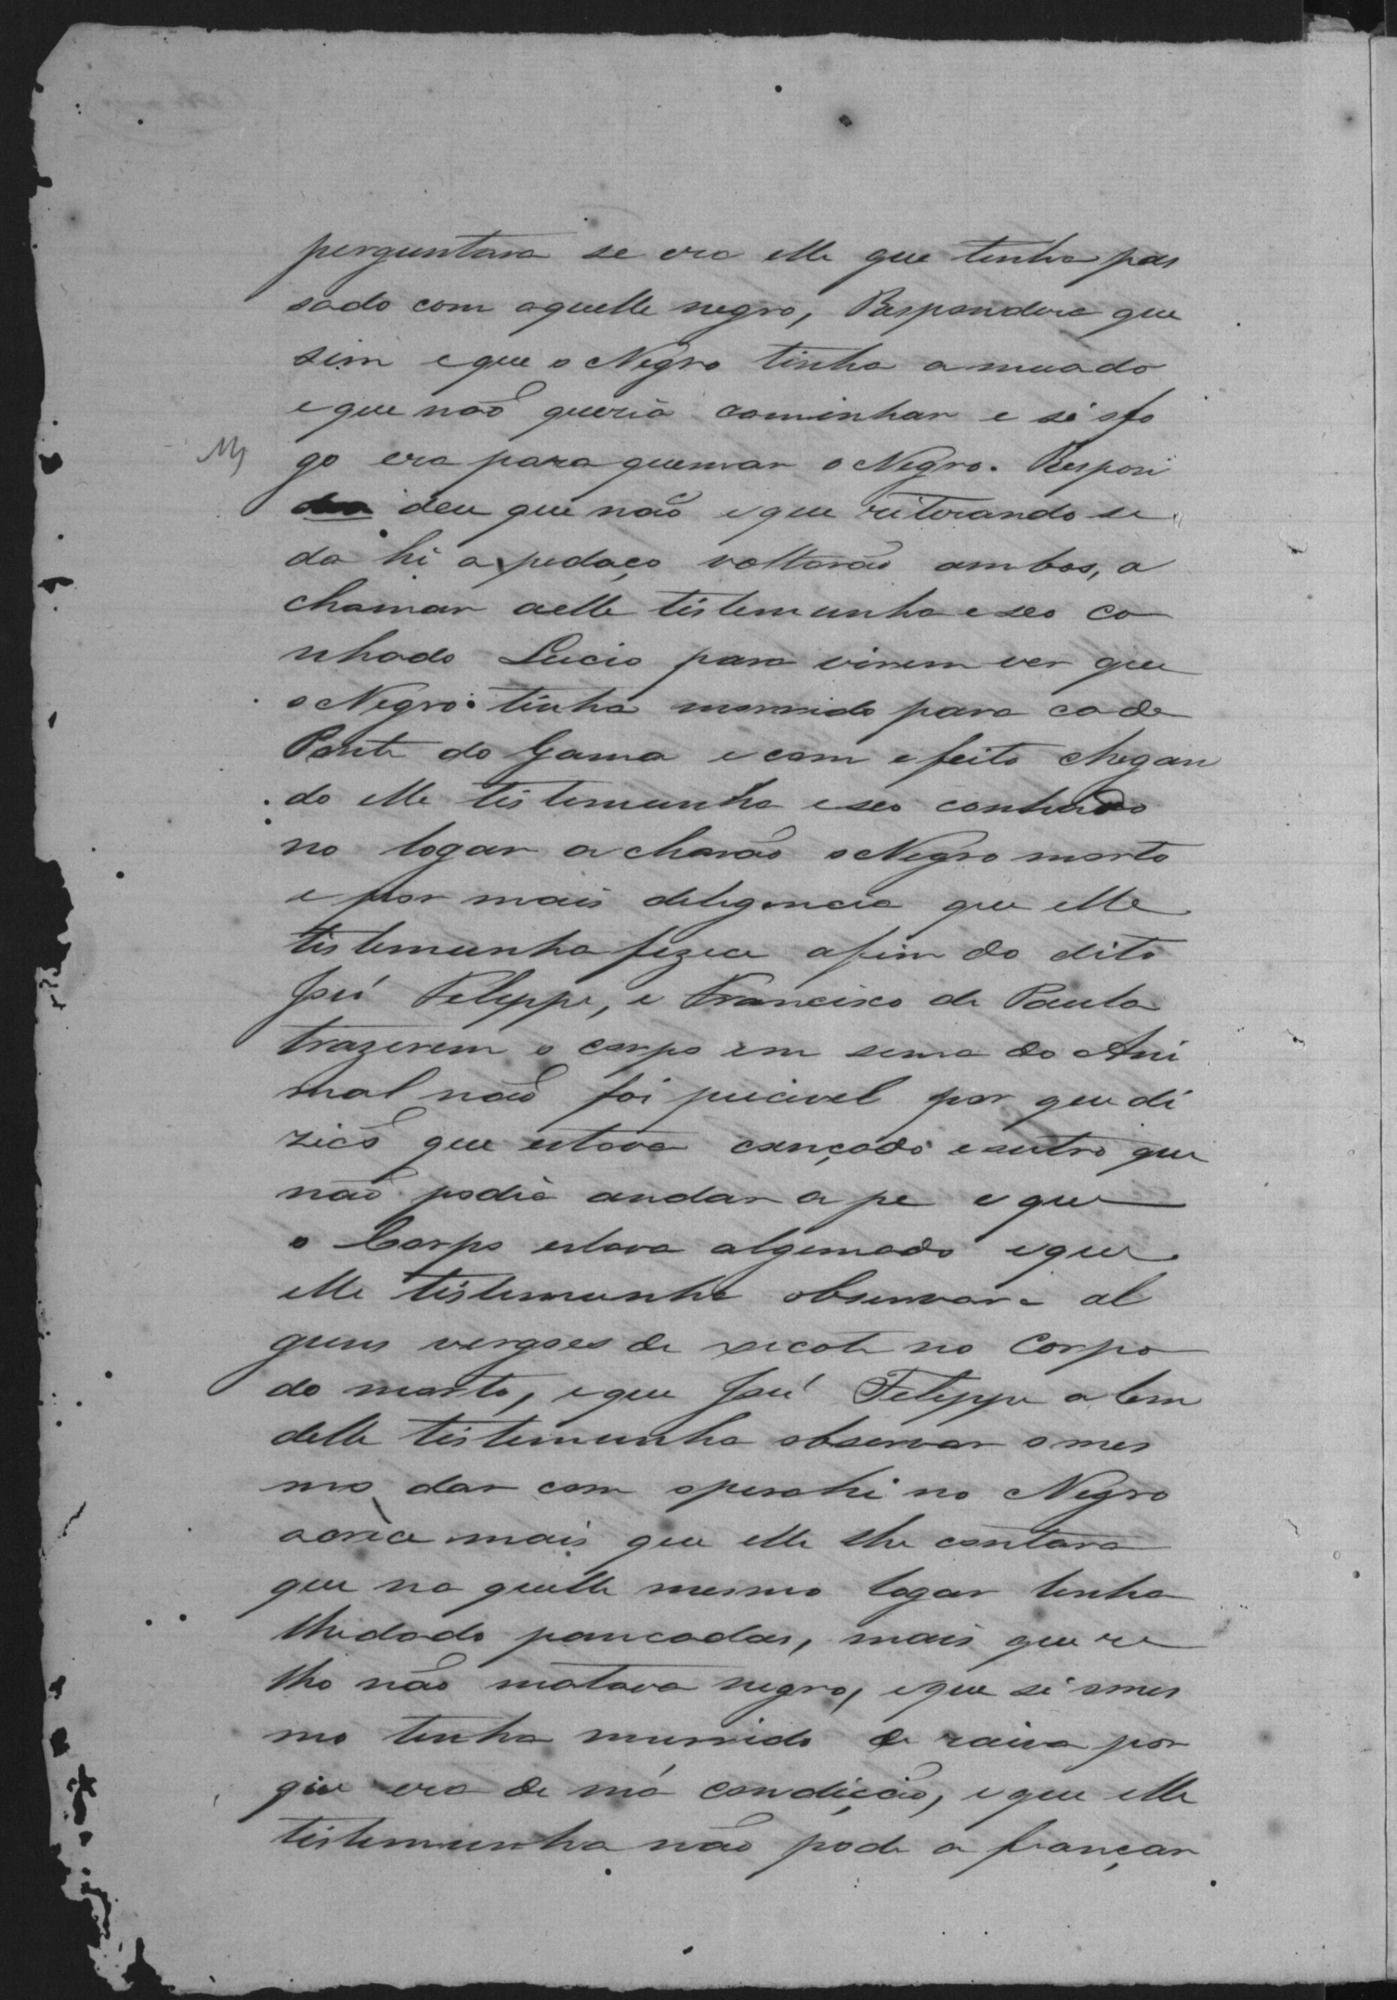 perguntara se era elle que tinha pas
sado com aquelle negro, Respondera que
sim e que o Negro tinha amuado
e que não queria caminhar e si o fo
go era para queimar o Negro. Respon
deu que não e que ritirando se
da hi a pedaço voltarão ambos, a
chamar a elle tistemunha e seo co
nhado Lucio para virem ver que
o Negro tinha morrido para ca de
Ponte do Gama e com efeito chegan
do elle tistemunha e seo conhado
no logar acharão o Negro morto
e por mais deligencia que elle
tistemunha fizece afim do dito
José Felippe, e Francisco de Paula
trazerem o corpo em sema do Ani
mal não foi pucivel por que di
zião que estava cançado e outro que
não podia andar a pe e que
o Corpo estava algemado e que
elle tistemunha observara al
guns vergoes de xicote no Corpo
do morto, e que José Felippe alem
delle tistemunha observar o mes
mo dar com o perahi no Negro
acrece mais que elle lhe contara
que na quelle mesmo logar tinha
lhe dado pancadas, mais que re
lho não matava negro, e que si o mes
mo tinha murrido de raiva por
que era de má condicção, e que elle
tistemunha não pode a françar